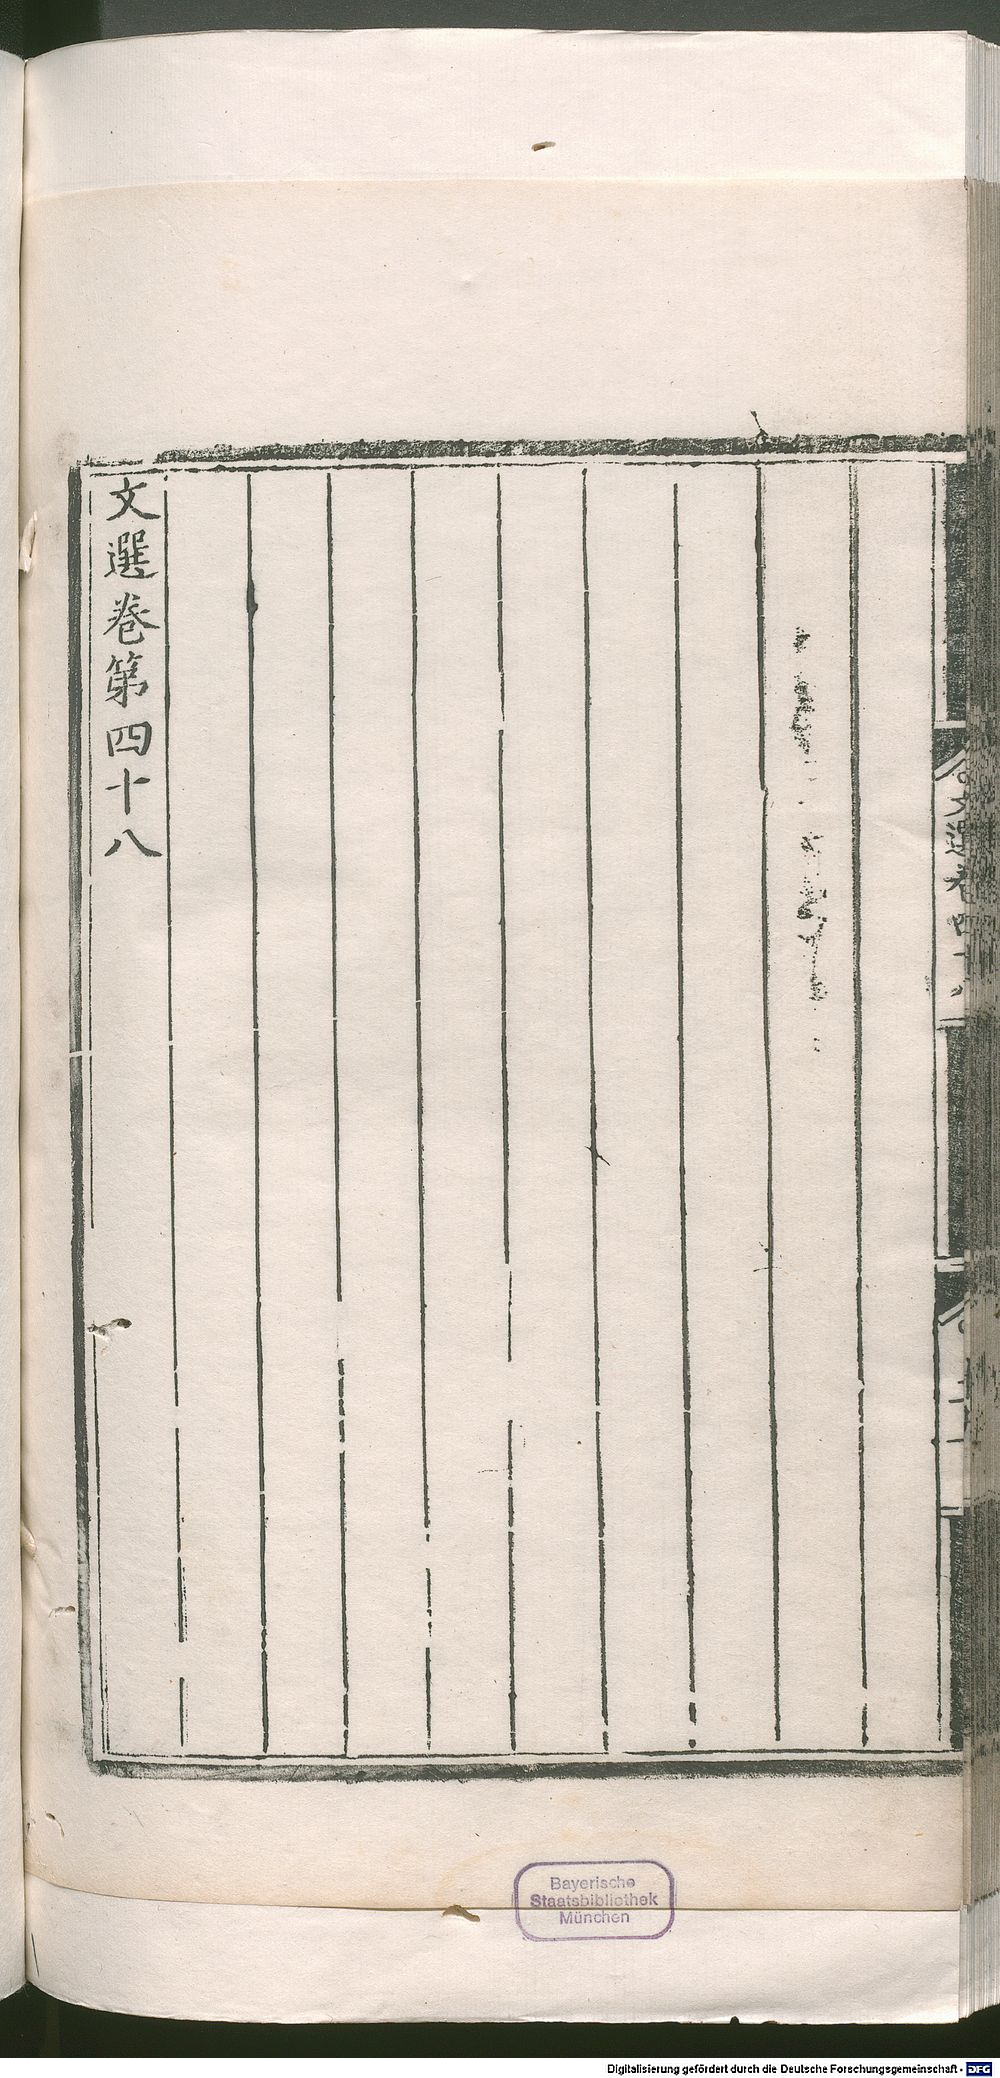 文選卷四十八
文選卷第四十八
Bayerische
Staatsbibliothek
München
Digitalisierung gefördert durch die Deutsche Forschungsgemeinschaft - DFG